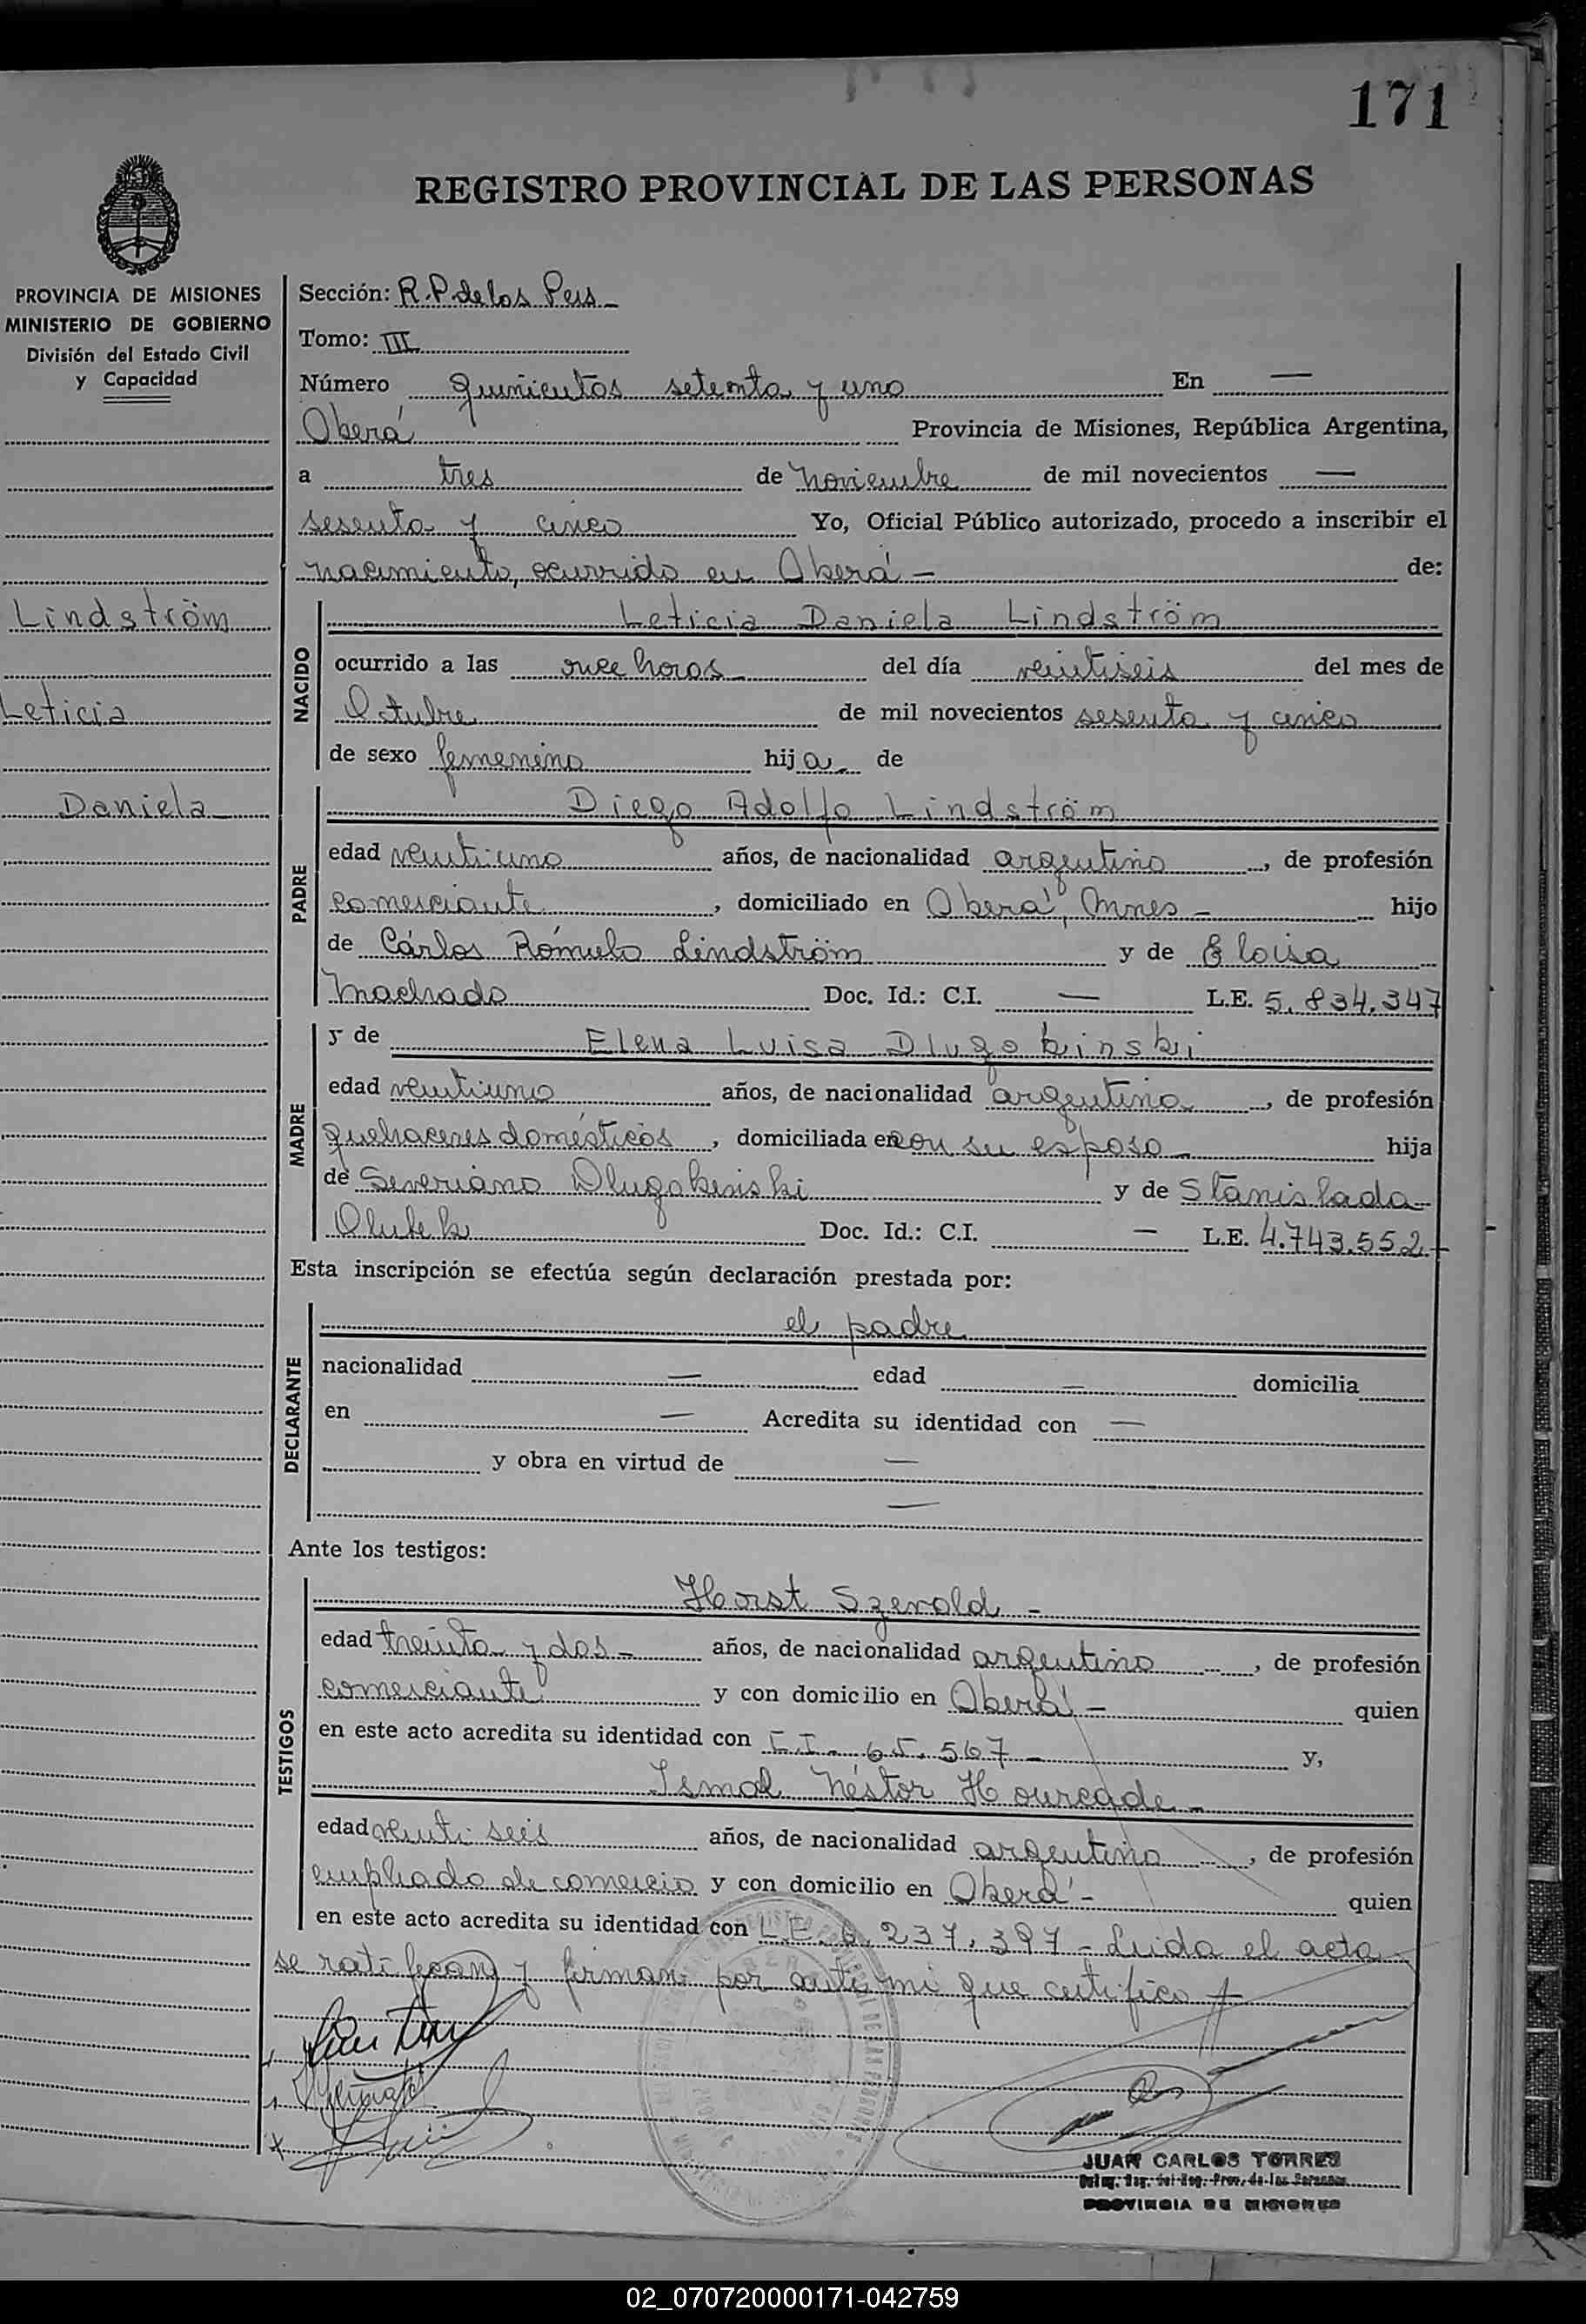 171
REGISTRO PROVINCIAL DE LAS PERSONAS
PROVINCIA DE MISIONES
MINISTERIO DE GOBIERNO
División del Estado Civil
y Capacidad
Lindström
Leticia
Daniela
Sección: R.P. de las Pers
Tomo: III
Número quinientos setenta y uno En —
Oberá Provincia de Misiones, República Argentina,
a tres de Noviembre de mil novecientos —
sesenta y cinco Yo, Oficial Público autorizado, procedo a inscribir el
nacimiento, ocurrido en Oberá - de:
NACIDO
Leticia Daniela Lindström
ocurrido a las once horas del día veintiseis del mes de
Octubre de mil novecientos sesenta y cinco
de sexo femenino hija de
PADRE
Diego Adolfo Lindström
edad veintiuno años, de nacionalidad argentino, de profesión
comerciante, domiciliado en Oberá, Mnes - hijo
de Cárlos Rómulo Lindström y de Eloisa
Machado Doc. Id.: C.I. — L.E. 5.834.347
MADRE
y de Elena Luisa Dlugokinski
edad veintiuno años, de nacionalidad argentina, de profesión
quehaceres domésticos, domiciliada en con su esposo - hija
de Severiano Dlugokinski y de Stanislada
Doc. Id.: C.I. — L.E. 4.743.552
Esta inscripción se efectúa según declaración prestada por:
DECLARANTE
el padre
nacionalidad — edad — domicilia
en — Acredita su identidad con —
y obra en virtud de —
—
Ante los testigos:
TESTIGOS
Horst Szerold -
edad treinta y dos - años, de nacionalidad argentino, de profesión
comerciante y con domicilio en Oberá - quien
en este acto acredita su identidad con C.I. 65.567 - y,
Ismal Néstor Hourcade -
edad veintiseis años, de nacionalidad argentino, de profesión
empleado de comercio y con domicilio en Oberá - quien
en este acto acredita su identidad con L.E. 6.237.397 - Leida el acta
se ratifican y firman por ante mi que certifico
JUAN CARLOS TORRES
PROVINCIA DE MISIONES
02_070720000171-042759